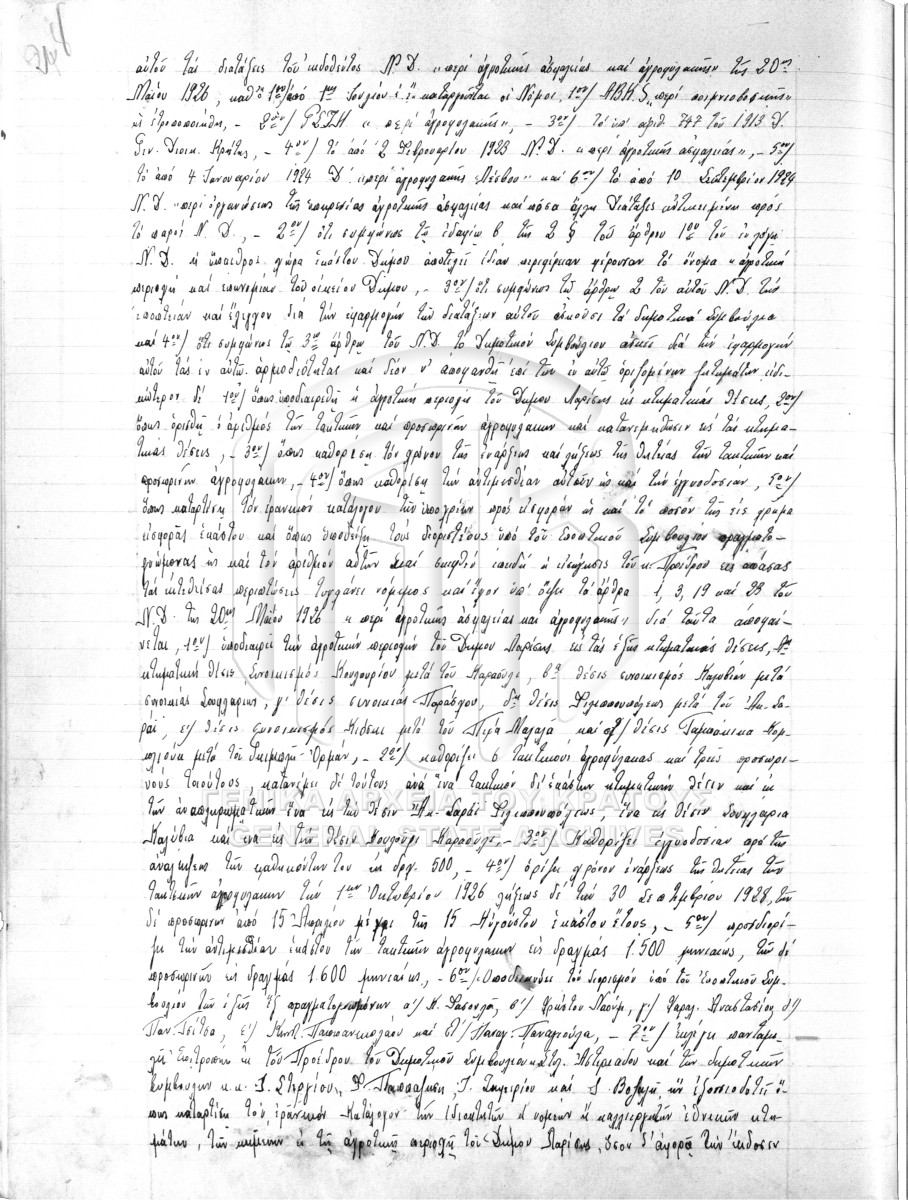 αὐτοῦ τὰς διατάξεις τοῦ ἐκδοθέντος Ν. Δ. «περὶ ἀγροτικῆς ἀσφαλείας καὶ ἀγροφυλακῆς» τῆς 20ης
Μαΐου 1926, καθ' ὃ 1ον/ ἀπὸ 1ης Ἰουλίου ἐ.ἔ. καταργοῦνται οἱ Νόμοι, 1ον/ ͵ΑΒΚϚ «περὶ ποιμνιοβοσκῆς»
ὡς ἐτροποποιήθη, - 2ον/ ΓΣΙΗ «περὶ ἀγροφυλακῆς», - 3ον/ τὸ ὑπ' ἀριθ. 747 τοῦ 1913 Δ.
Γεν. Διοικ. Κρήτης, - 4ον/ τὸ ἀπὸ 2 Φεβρουαρίου 1923 Ν. Δ. «περὶ ἀγροτικῆς ἀσφαλείας», - 5ον/
τὸ ἀπὸ 4 Ἰανουαρίου 1924 Δ. «περὶ ἀγροφυλακῆς Λέσβου» καὶ 6ον/ τὸ ἀπὸ 10 Σεπτεμβρίου 1924
Ν. Δ. «περὶ ὀργανώσεως τῆς ὑπηρεσίας ἀγροτικῆς ἀσφαλείας καὶ πᾶσα ἄλλη διάταξις ἀντικειμένη πρὸς
τὸ παρὸν Ν. Δ., - 2ον/ ὅτι συμφώνως τῷ ἐδαφίῳ β τῆς 2 § τοῦ ἄρθρου 1ου τοῦ ἐν λόγῳ
Ν. Δ. ἡ ὕπαιθρος χώρα ἑκάστου Δήμου ἀποτελεῖ ἰδίαν περιφέρειαν φέρουσαν τὸ ὄνομα «ἀγροτικὴ
περιοχὴ καὶ ἐπωνυμίαν τοῦ οἰκείου Δήμου, - 3ον/ ὅτι συμφώνως τῷ ἄρθρῳ 2 τοῦ αὐτοῦ Ν. Δ. τὴν
ἐποπτείαν καὶ ἔλεγχον διὰ τὴν ἐφαρμογὴν τῶν διατάξεων αὐτοῦ ἀσκοῦσι τὰ δημοτικὰ Συμβούλια
καὶ 4ον/ ὅτι συμφώνως τῷ 3ῳ ἄρθρῳ τοῦ Ν.Δ. τὸ Δημοτικὸν Συμβούλιον ἀσκεῖ διὰ τὴν ἐφαρμογὴν
αὐτοῦ τὰς ἐν αὐτῷ ἁρμοδιότητας καὶ δέον ν' ἀποφανθῇ ἐπὶ τῶν ἐν αὐτῷ ὁριζομένων ζητημάτων εἰδι-
κώτερον δὲ 1ον/ ὅπως ὑποδιαιρεθῇ ἡ ἀγροτικὴ περιοχὴ τοῦ Δήμου Λαρίσης εἰς κτηματικὰς θέσεις, 2ον/
ὅπως ὁρισθῇ ὁ ἀριθμὸς τῶν τακτικῶν καὶ προσωρινῶν ἀγροφυλάκων καὶ κατανεμηθῶσιν εἰς τὰς κτημα-
τικὰς θέσεις, - 3ον/ ὅπως καθορίσῃ τὸν χρόνον τῆς ἐνάρξεως καὶ λήξεως τῆς θητείας τῶν τακτικῶν καὶ
προσωρινῶν ἀγροφυλάκων, - 4ον/ ὅπως καθορίσῃ τὴν ἀντιμισθίαν αὐτῶν ὡς καὶ τὴν ἐγγυοδοσίαν, 5ον/
ὅπως καταρτίσῃ τὸν ἐρανικὸν κατάλογον τῶν ὑποχρέων πρὸς εἰσφορὰν ὡς καὶ τὸ ποσὸν τῆς εἰς χρῆμα
εἰσφορᾶς ἑκάστου καὶ ὅπως ὑποδείξῃ τοὺς διοριστέους ὑπὸ τοῦ Ἐποπτικοῦ Συμβουλίου πραγματο-
γνώμονας ὡς καὶ τὸν ἀριθμὸν αὐτῶν καὶ σκεφθὲν ἐπειδὴ ἡ εἰσήγησις τοῦ κ. Προέδρου εἰς ἁπάσας
τὰς ἐκτεθείσας περιπτώσεις τυγχάνει νόμιμος καὶ ἔχον ὑπ' ὄψει τὰ ἄρθρα 1, 3, 19 καὶ 23 τοῦ
Ν. Δ. τῆς 20ης Μαΐου 1926 «περὶ ἀγροτικῆς ἀσφαλείας καὶ ἀγροφυλακῆς» διὰ ταῦτα ἀποφαί-
νεται, 1ον/ ὑποδιαιρεῖ τὴν ἀγροτικὴν περιοχὴν τοῦ Δήμου Λαρίσης εἰς τὰς ἑξῆς κτηματικὰς θέσεις, Αη
κτηματικὴ θέσις Συνοικισμὸς Κουλουρίου μετὰ τοῦ Καραούλι, βα θέσις συνοικισμὸς Καλυβίων μετὰ
συνοικίας Σουφλαρίων, γ' θέσις συνοικίας Παράσχου, δη θέσις Φιλιππουπόλεως μετὰ τοῦ Ἀκ-Σα-
ράϊ, ε/ θέσις συνοικισμὸς Κιόσκι μετὰ τοῦ Πέρα Μαχαλᾶ καὶ στ/ θέσις Ταμπάκικα Κομ-
πλιούκα μετὰ τοῦ Ὀρμάν, - 2ον/ καθορίζει 6 τακτικοὺς ἀγροφύλακας καὶ τρεῖς προσωρι-
νοὺς τοιούτους κατανέμει δὲ τούτους ἀνὰ ἕνα τακτικὸν δι' ἑκάστην κτηματικὴν θέσιν καὶ ἐκ
τῶν ἀναπληρωματικῶν ἕνα εἰς τὴν θέσιν Ἀκ-Σαρὰϊ Φιλιππουπόλεως, ἕνα εἰς θέσιν Σουφλάρια
Καλύβια καὶ ἕνα εἰς τὴν θέσιν Κουλούρι Καραούλι, - 3ον/ Καθορίζει ἐγγυοδοσίαν πρὸ τῆς
ἀναλήψεως τῶν καθηκόντων του ἐκ δρχ. 500, - 4ον/ ὁρίζει χρόνον ἐνάρξεως τῆς θητείας τῶν
τακτικῶν ἀγροφυλάκων τὴν 1ην Ὀκτωβρίου 1926 λήξεως δὲ τὴν 30 Σεπτεμβρίου 1928, τῶν
δὲ προσωρινῶν ἀπὸ 15 Ἀπριλίου μέχρι τῆς 15 Αὐγούστου ἑκάστου ἔτους, - 5ον/ προσδιορί-
ζει τὴν ἀντιμισθίαν ἑκάστου τῶν τακτικῶν ἀγροφυλάκων εἰς δραχμὰς 1.500 μηνιαίως, τῶν δὲ
προσωρινῶν εἰς δραχμὰς 1.600 μηνιαίως, - 6ον/ Ὑποδεικνύει τὸν διορισμὸν ὑπὸ τοῦ Ἐποπτικοῦ Συμ-
βουλίου τῶν ἑξῆς ἓξ πραγματογνωμόνων α'/ Κ. Φασούλα, β'/ Χρήστου Ναούμ, γ'/ Χαραλ. Ἀναστασίου, δ'/
Παν. Τσίτσα, ε'/ Κωνστ. Παπανικολάου καὶ στ'/ Παναγ. Παναγιούλα, - 7ον/ Ἐκλέγει πενταμε-
λῆ Ἐπιτροπὴν ἐκ τοῦ Προέδρου τοῦ Δημοτικοῦ Συμβουλίου κ. Ἀστεριάδου καὶ τῶν δημοτικῶν
Συμβούλων κ.κ. Γ. Στεργίου, Φ. Παπαλέξη, Γ. Ζαχερίου καὶ ἣν ἐξουσιοδοτεῖ ὅ-
πως καταρτίσῃ τὸν ἐρανικὸν κατάλογον τῶν ἰδιοκτητῶν ἢ νομέων ἢ καλλιεργητῶν ἐθνικῶν κτη-
μάτων, τῶν κειμένων ἐν τῇ ἀγροτικῇ περιοχῇ τοῦ Δήμου Λαρίσης, ὅσον δ' ἀφορᾷ τὴν ἔκδοσιν
ΓΕΝΙΚΑ ΑΡΧΕΙΑ ΤΟΥ ΚΡΑΤΟΥΣ
GENERAL STATE ARCHIVES